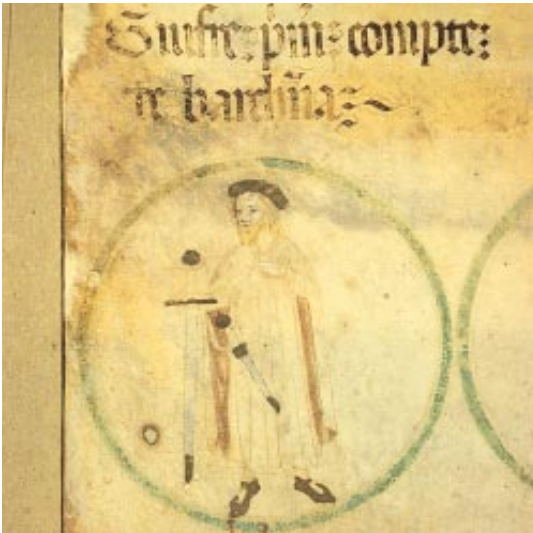 Guifre: p̃m̃: compte:
de barch̃na:~